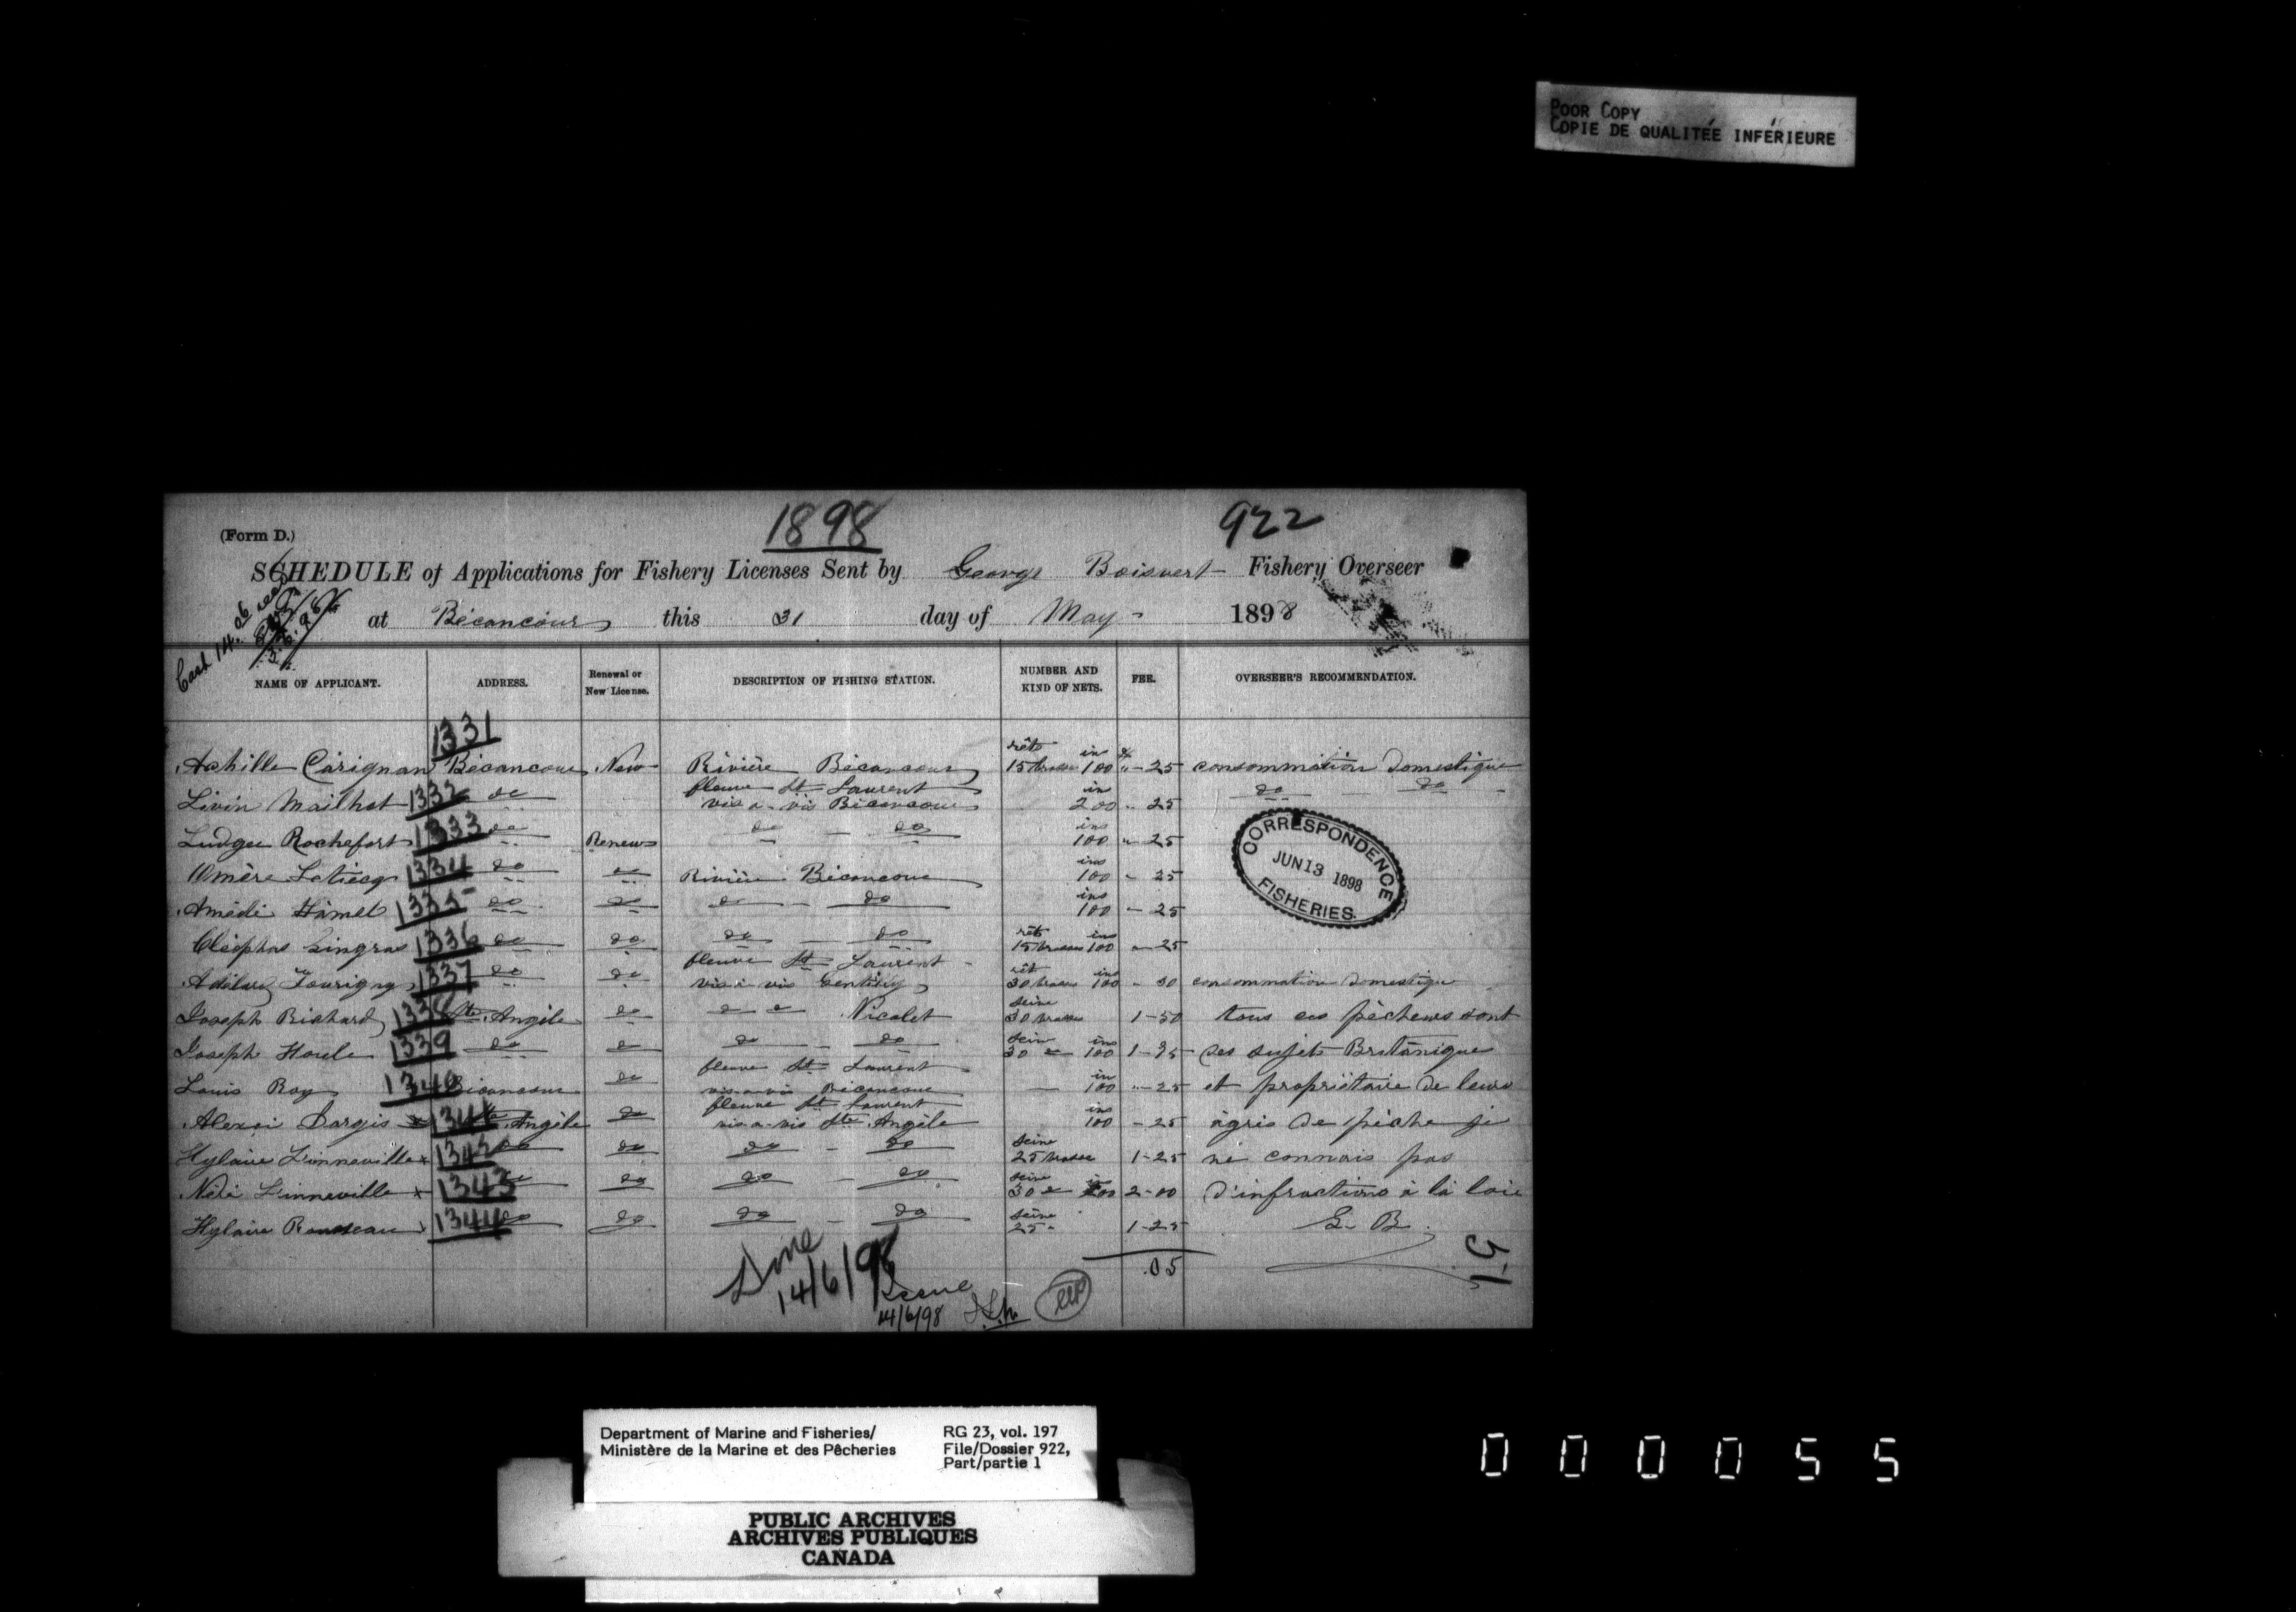 POOR COPY
COPIE DE QUALITÉE INFÉRIEURE
1898
922
(Form D.)
SCHEDULE of Applications for Fishery Licenses Sent by George Boisvert Fishery Overseer
at Bécancour this 31 day of May 1898
NAME OF APPLICANT. ADDRESS. Renewal or New License. DESCRIPTION OF FISHING STATION. NUMBER AND KIND OF NETS. FEE. OVERSEER'S RECOMMENDATION.
1331
Achille Carignan Bécancour New Rivière Bécancour rêts 15 brasses ins 100 " - 25 consommation Domestique
Livin Mailhot 1332 do fleuve St Laurent vis a vis Bécancour in 200 " 25 do do
Ludger Rochefort 1333 do Renew do do ins 100 " 25
1334 do do Rivière Bécancour ins 100 - 25
Amédé Hamel 1335 do do do do ins 100 - 25
Cléophas Gingras 1336 do do do do rêts 15 brasses ins 100 - 25
Adélard Tourigny 1337 do do fleuve St Laurent vis a vis Gentilly rêt 30 brasses ins 100 consommation domestique
Joseph Richard 1338 Ste Angèle do do do Nicolet seine 30 brasses 1-50 tous ces pècheurs sont
Joseph Houle 1339 do do do do sein 30 do ins 100 des sujets Britanique
Louis Roy 1340 Bécancour do fleuve St Laurent vis-a-vis Bécancour in 100 " - 25 et propriétaire de leurs
Alexi Dargis x 1341 Ste Angèle do fleuve St Laurent vis-a-vis Ste Angèle ins 100 - 25 àgris de pèche je
Hylaire Linneville x 1342 do do do do seine 25 brasse 1-25 ne connais pas
Linneville x 1343 do do do do seine 30 do 2-00 d'infractions à la loie
Hylaire Rousseau x 1344 do do do do seine 25 " 1-25 G. B.
05
51
Done
14/6/98
14/6/98
CORRESPONDENCE
JUN 13 1898
FISHERIES.
Department of Marine and Fisheries/
Ministère de la Marine et des Pêcheries
RG 23, vol. 197
File/Dossier 922,
Part/partie 1
PUBLIC ARCHIVES
ARCHIVES PUBLIQUES
CANADA
000055